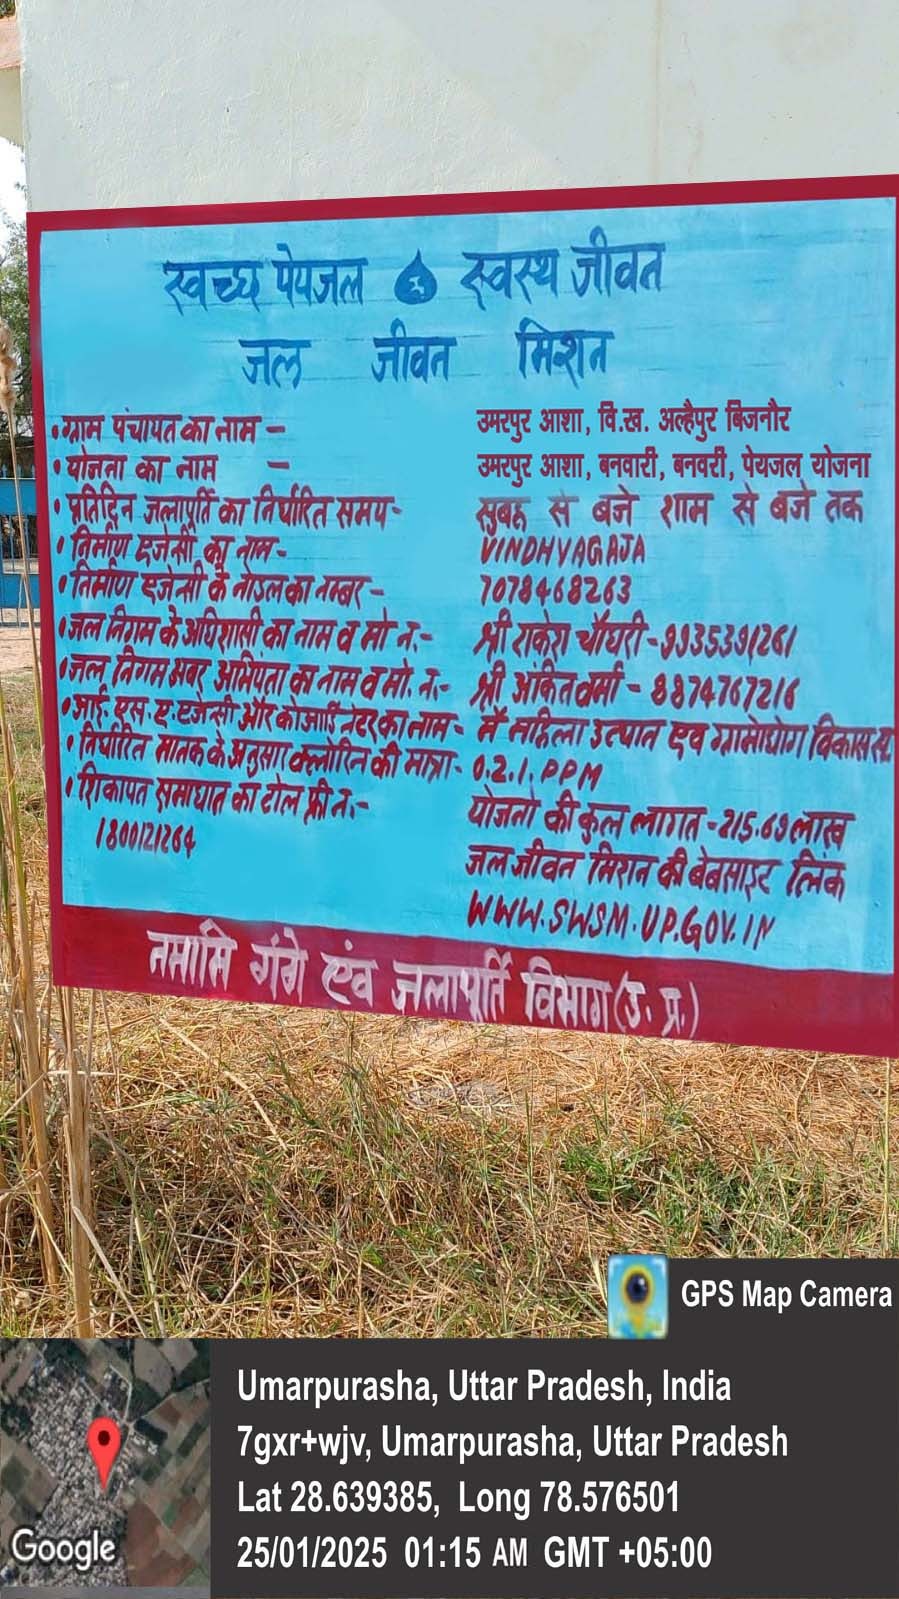 स्वच्छ पेयजल स्वस्थ जीवन
जल जीवन मिशन
• ग्राम पंचायत का नाम - उमरपुर आशा, वि.ख. अल्हैपुर बिजनौर
• योजना का नाम - उमरपुर आशा, बनवारी, बनवरी, पेयजल योजना
• प्रतिदिन जलापूर्ति का निर्धारित समय- सुबह से बजे शाम से बजे तक
• निर्माण एजेन्सी का नाम- VINDHYAGAJA
• निर्माण एजेन्सी के नोडल का नम्बर- 7078468263
• जल निगम के अधिशासी का नाम व मो न.- श्री राकेश चौधरी-9935391261
• जल निगम अवर अभियंता का नाम व मो. न.- श्री अंकित वर्मा - 8874767216
• आई. एस. ए. एजेन्सी और कोआर्डिनेटर का नाम- में महिला उत्पात एव ग्रामोद्योग विकास स.
• निर्धारित मानक के अनुसार क्लोरिन की मात्रा- 0.2.1. PPM
• शिकायत समाघात का टोल फ्री न.- योजना की कुल लागत-215.69 लाख
1800121264 जल जीवन मिशन की बेबसाइट लिंक
WWW.SWSM.UP.GOV.IN
नमामि गंगे एंव जलापूर्ति विभाग (उ. प्र.)
GPS Map Camera
Umarpurasha, Uttar Pradesh, India
7gxr+wjv, Umarpurasha, Uttar Pradesh
Lat 28.639385, Long 78.576501
25/01/2025 01:15 AM GMT +05:00
Google